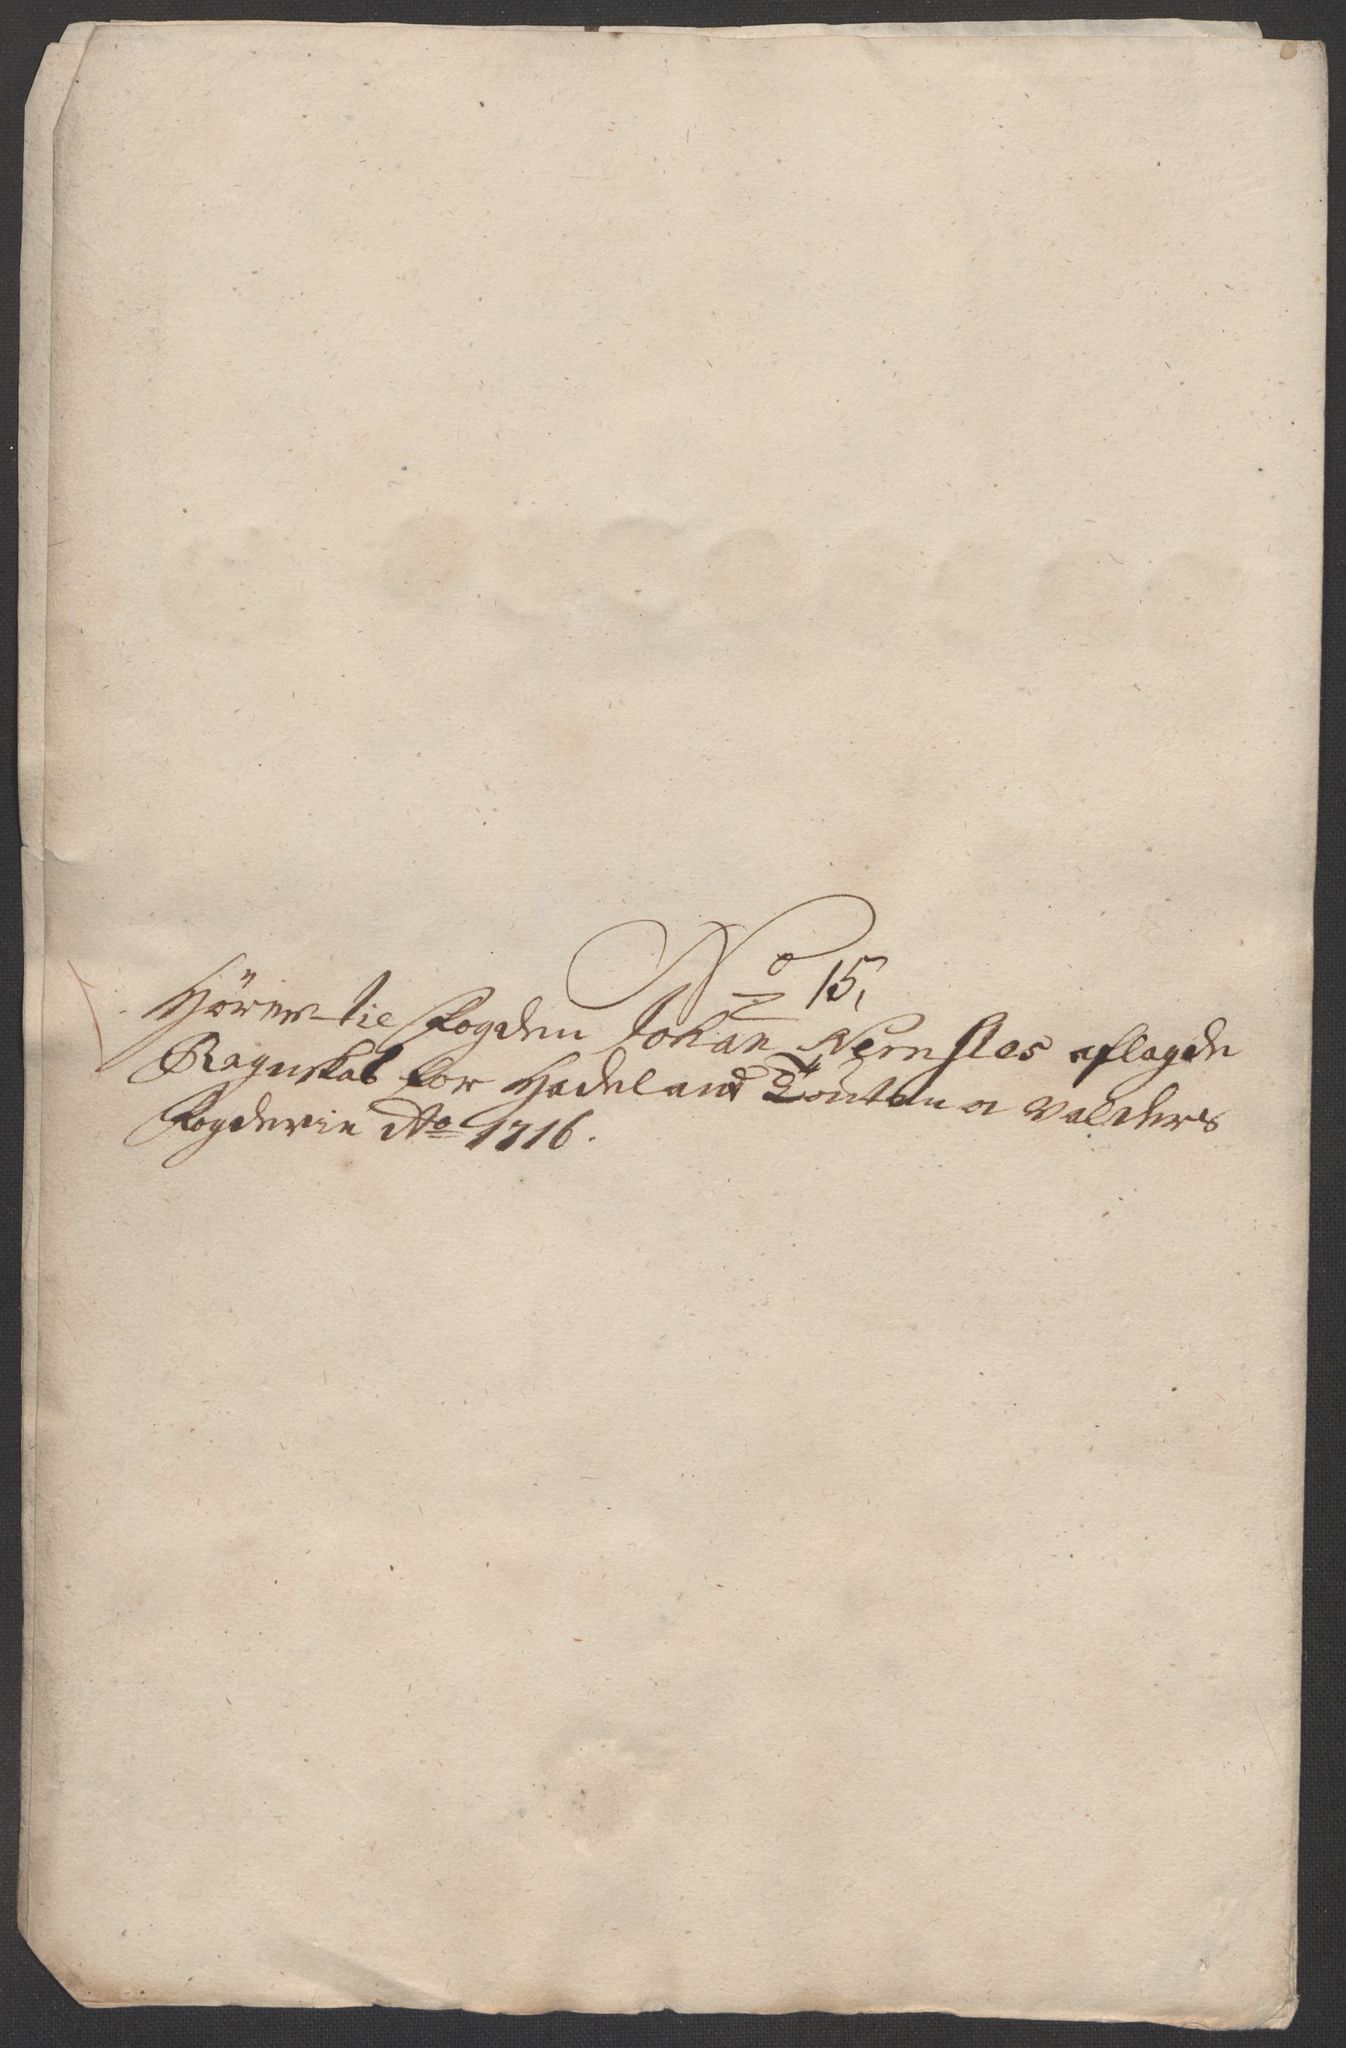 No 15,
Hører til Fogden Johan Nernstes aflagde
Ragnskab for Hadeland Touten oc Valders
Fogderie Ao 1716.